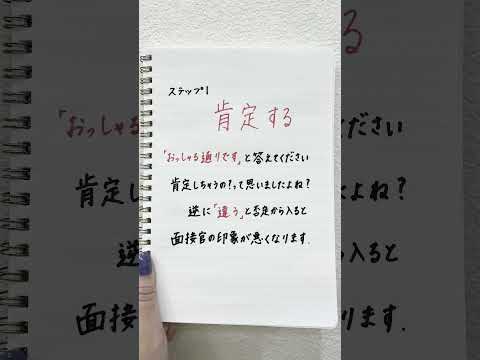 ステップ1
肯定する
「おっしゃる通りです」と答えてください
肯定しちゃうの?って思いましたよね?
逆に「違う」と否定から入ると
面接官の印象が悪くなります.